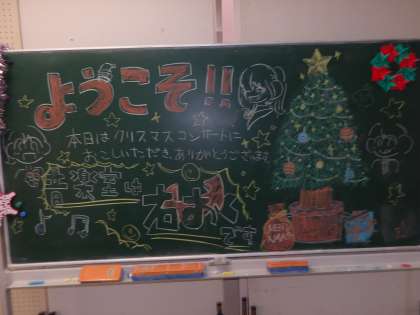 ようこそ!!
本日はクリスマスコンサートに
おこしいただき、ありがとうございます。
音楽室は
右おく
です